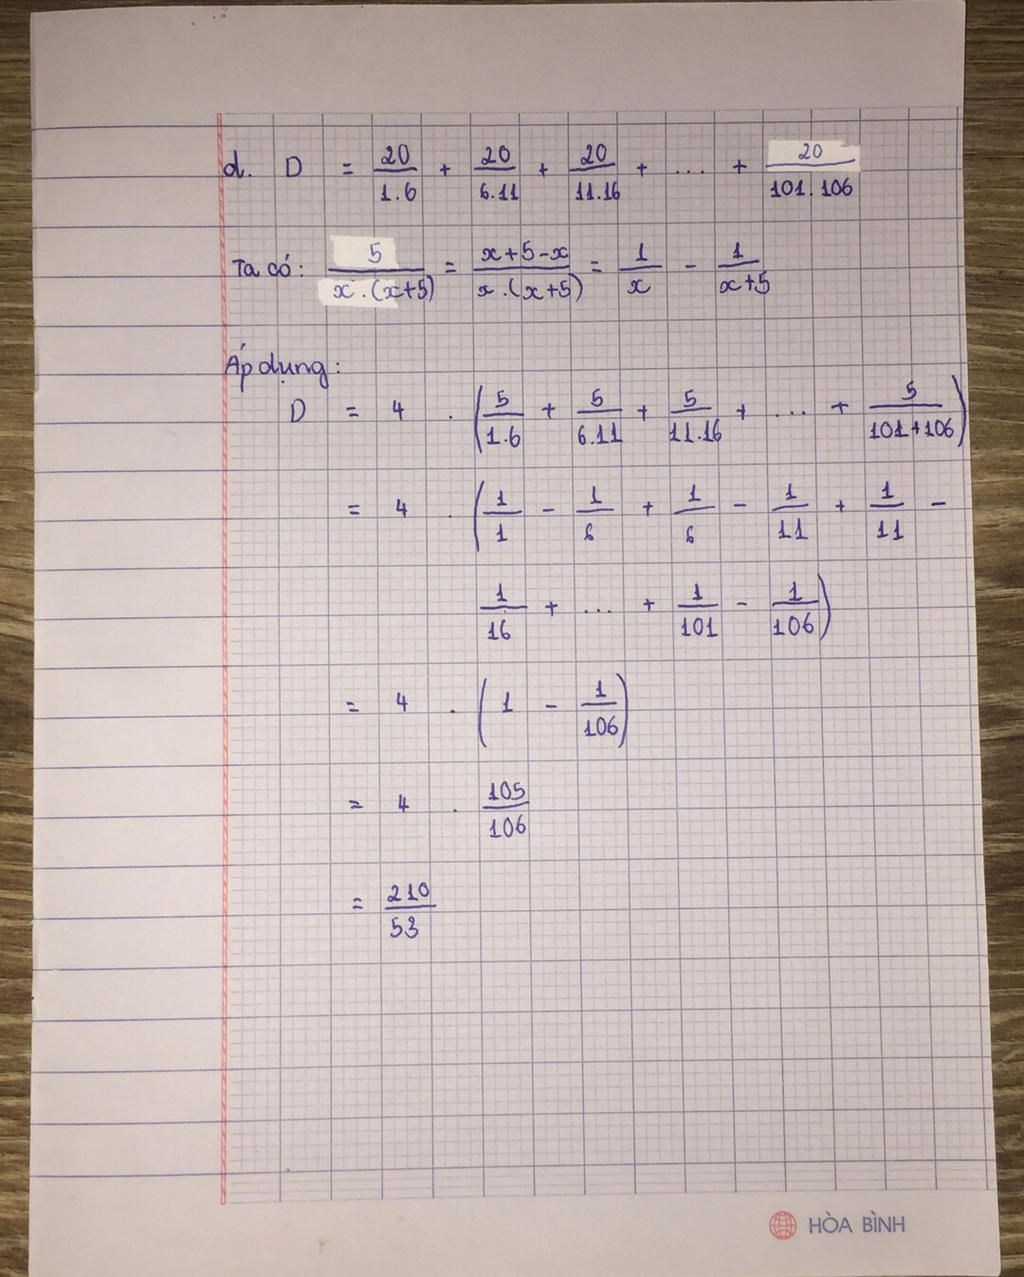 d. D = 20/1.6 + 20/6.11 + 20/11.16 + ... + 20/101.106
Ta có: 5/x.(x+5) = x+5-x/x.(x+5) = 1/x - 1/x+5
Áp dụng:
D = 4 . (5/1.6 + 5/6.11 + 5/11.16 + ... + 5/101+106)
= 4 . (1/1 - 1/6 + 1/6 - 1/11 + 1/11 -
1/16 + ... + 1/101 - 1/106)
= 4 . (1 - 1/106)
= 4 . 105/106
= 210/53
HÒA BÌNH